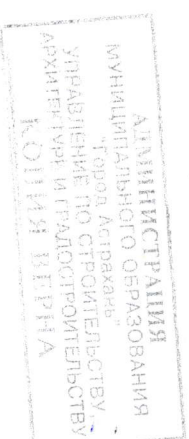 АДМИНИСТРАЦИЯ
МУНИЦИПАЛЬНОГО ОБРАЗОВАНИЯ
"Город Астрахань"
УПРАВЛЕНИЕ ПО СТРОИТЕЛЬСТВУ,
АРХИТЕКТУРЕ И ГРАДОСТРОИТЕЛЬСТВУ
КОПИЯ ВЕРНА